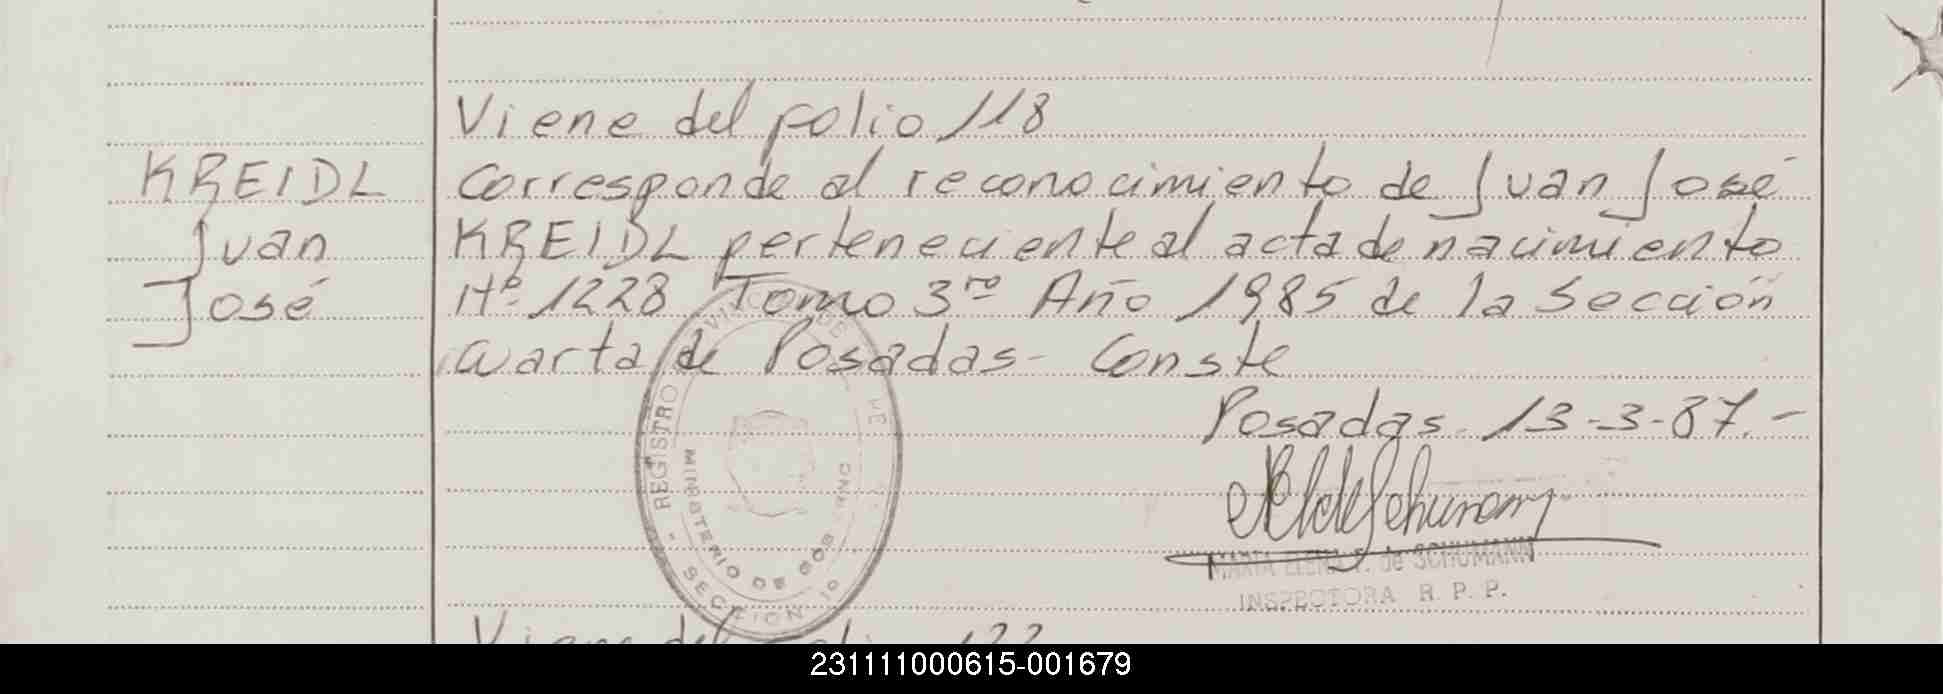 Viene del folio 118
KREIDL
Juan
José
Corresponde al reconocimiento de Juan José
KREIDL perteneciente al acta de nacimiento
Nº 1228 Tomo 3ro Año 1985 de la Sección
cuarta de Posadas - Conste
Posadas 13-3-87.-
MARIA ELENA F. de SCHUMANN
INSPECTORA R. P. P.
REGISTRO
MINISTERIO DE GOBIERNO
SECCION 1º
Viene del folio 122
231111000615-001679